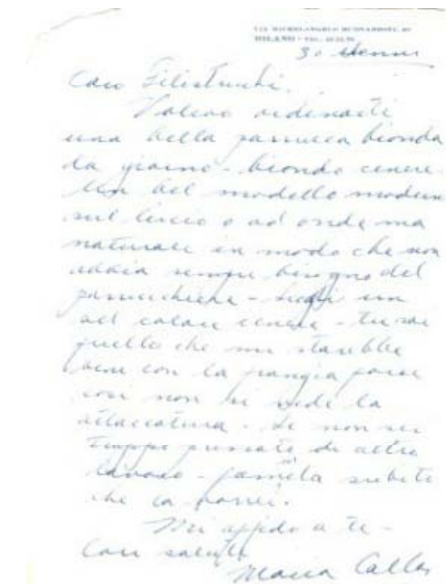 VIA MICHELANGELO BUONARROTI,
MILANO - TEL.
30
Caro Filistrucchi.
Volevo ordinarti
una bella parrucca bionda
da giorno - biondo cenere -
un bel modello moderno
sul liscio o ad onde ma
naturale in modo che non
abbia sempre bisogno del
parrucchiere -
bel colore cenere - tu sai
quello che mi starebbe
bene con la frangia forse
così non si vede la
attaccatura. Se non sei
troppo pressato da altro
lavoro - fammela subito
che la vorrei.
Mi affido a te -
Cari saluti
Maria Callas